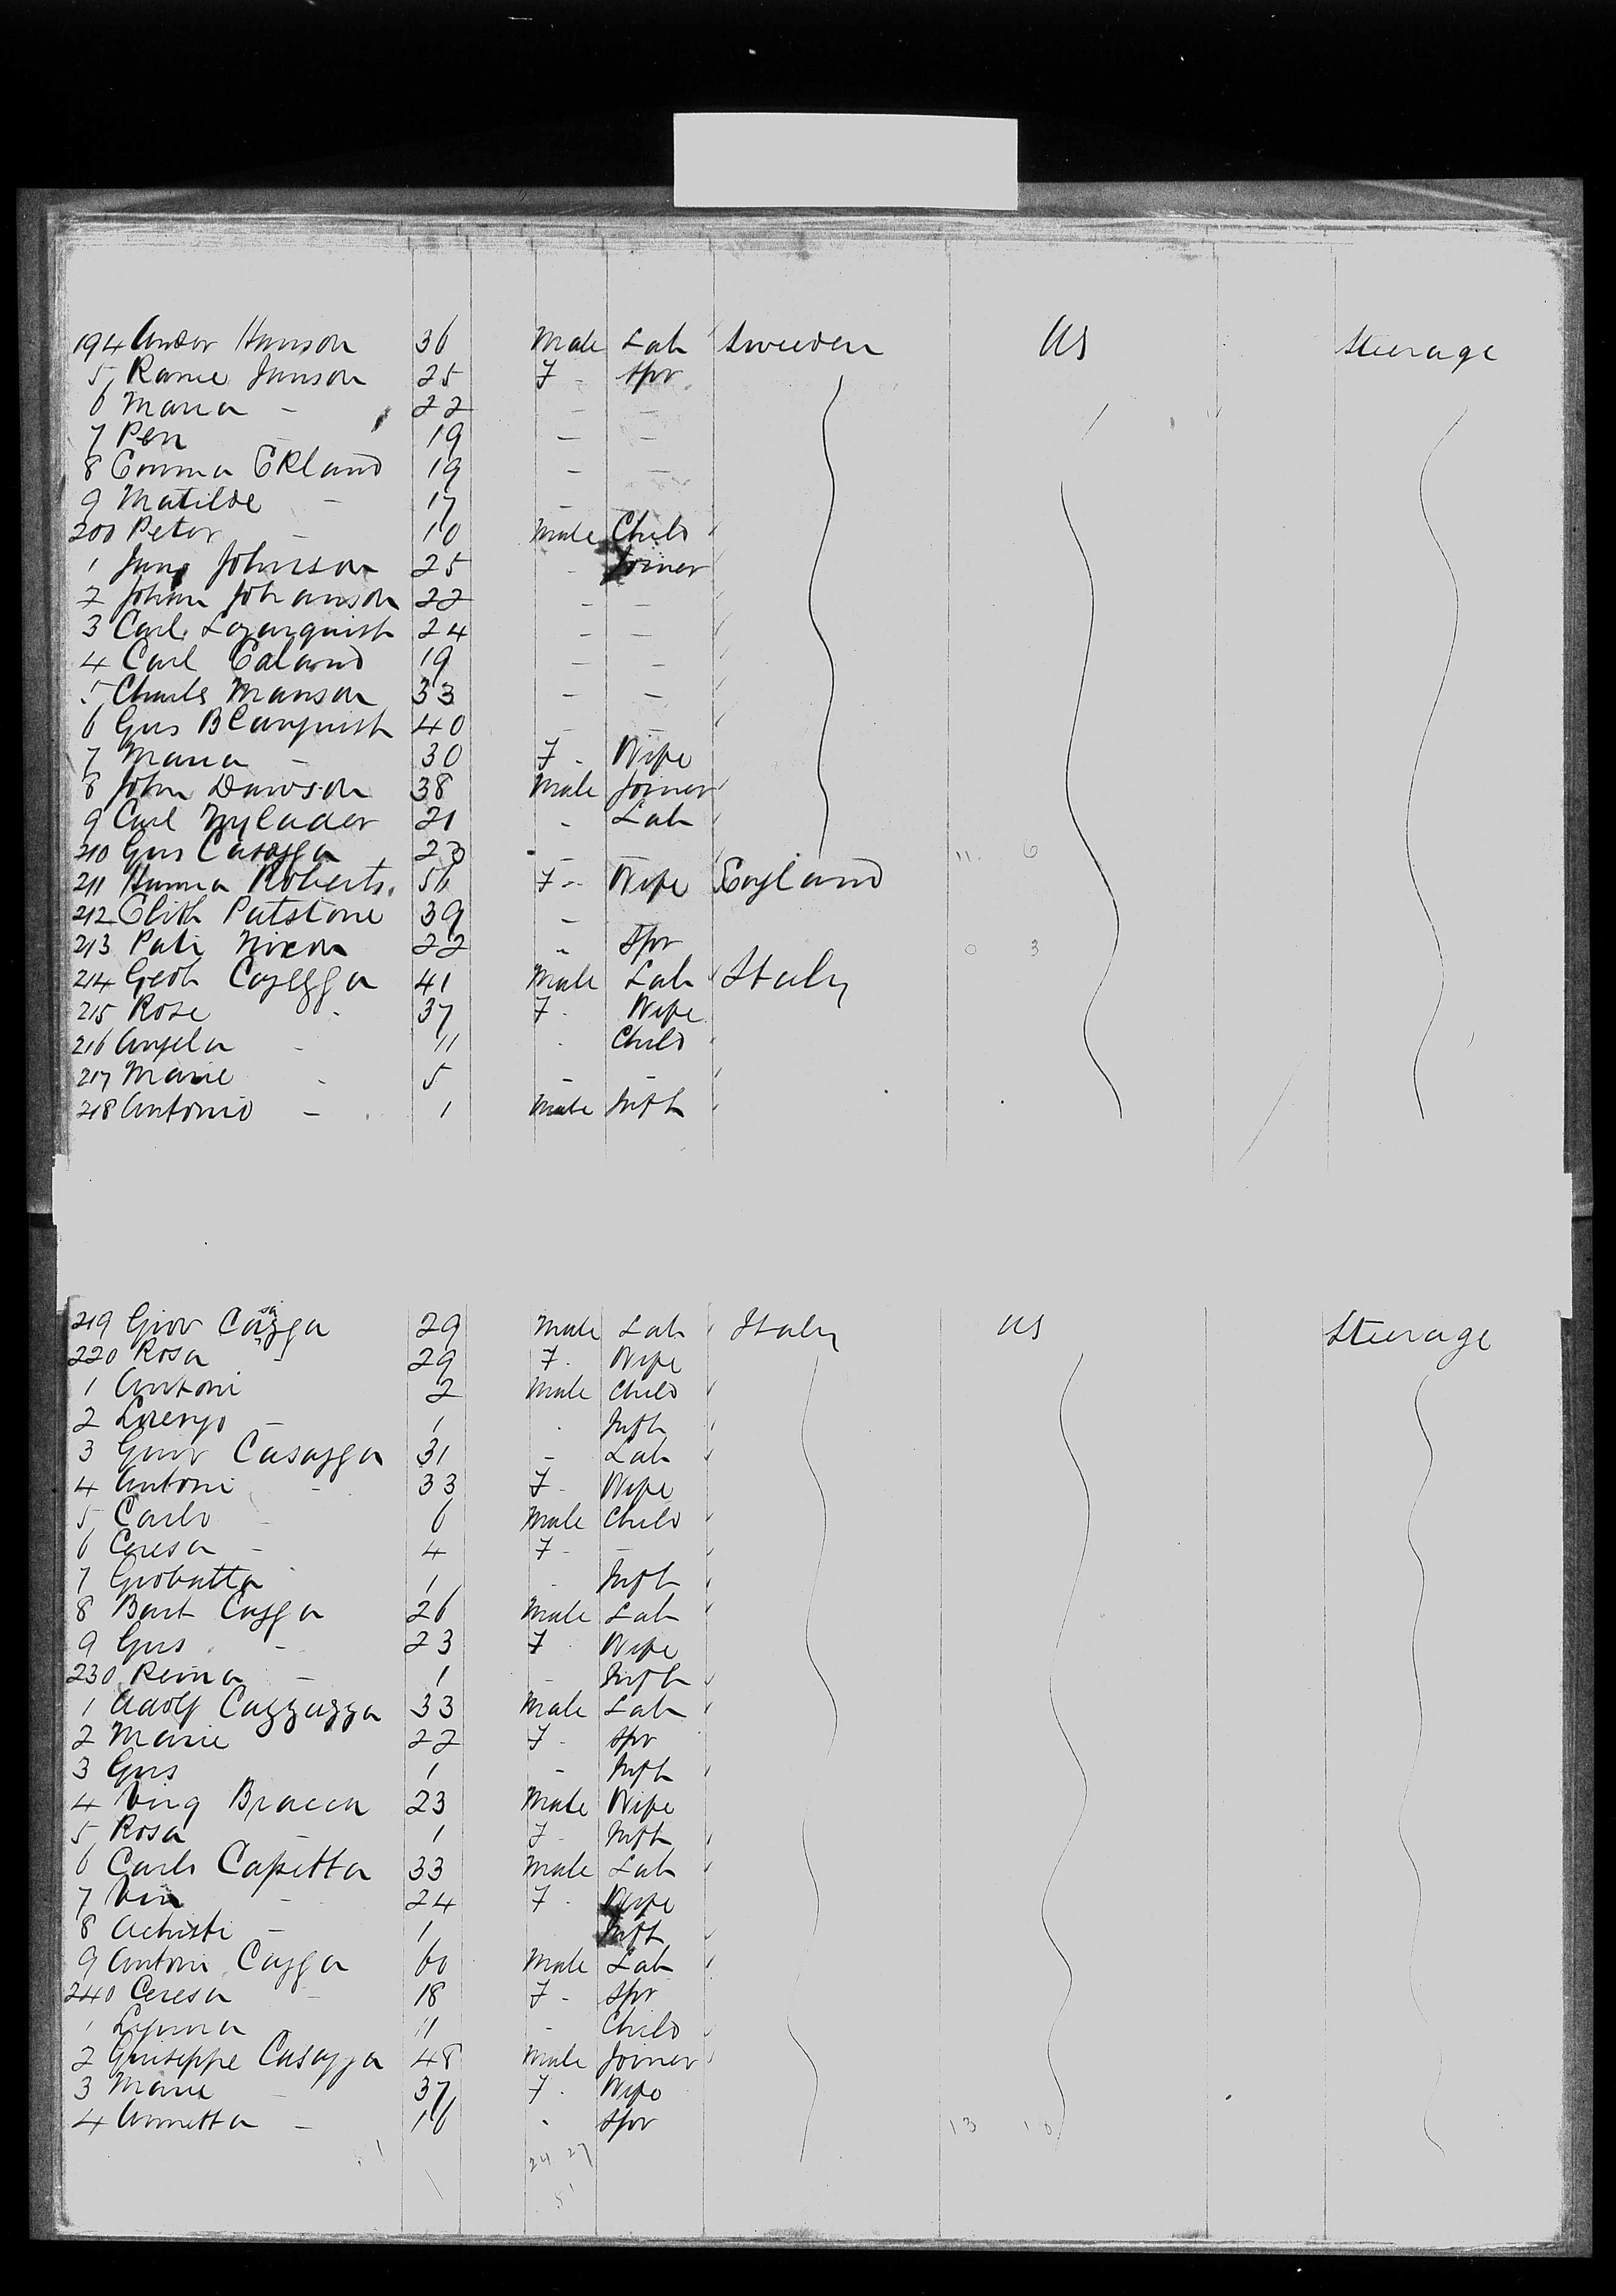 194 Ander Hanson 36 Male Lab Sweden US Steerage
5 Rame Junson 25 F - Spr
6 Maria - 22 - -
7 Pen - 19 - -
8 Emma Ekland 19 - -
9 Matilde - 17 -
200 Peter - 10 Male Child
1 Jung Johnson 25 - Joiner
2 Johan Johanson 22 - -
3 Carl Lozarquist 24 - -
4 Carl Ealand 19 - -
5 Charls Manson 33 - -
6 Gus Blanquist 40 - -
7 Maria - 30 F - Wife
8 John Dawson 38 Male Joiner
9 Carl Nylader 21 - Lab
210 Gus Casazza 23 - - 11 6
211 Hanna Roberts. 56 F - Wife England
212 Elith Patstone 39 - -
213 Pati Nixon 22 - Spr 0 3
214 Geoh Cazezza 41 Male Lab Italy
215 Rose - 37 F - Wife
216 Angela - 11 - Child
217 Marie - 5 - -
218 Antonio - 1 Male Inft
219 Giov Cazza 29 Male Lab Italy US Steerage
220 Rosa - 29 F - Wife
1 Antoni 2 Male Child
2 Lorenzo - 1 - Inft
3 Giov Casazza 31 - Lab
4 Antoni - 33 F - Wife
5 Carlo - 6 Male Child
6 Ceresa - 4 F - -
7 Giobatta 1 - Inft
8 Bart Cazza 26 Male Lab
9 Gus - 23 F Wife
230 Reina - 1 - Inft
1 Adolf Cazzazza 33 Male Lab
2 Marie 22 F - Spr
3 Gus 1 - Inft
4 Virg Bracca 23 Male Wife
5 Rosa - 1 F - Inft
6 Carlo Capetta 33 Male Lab
7 Vin - 24 F - Wife
8 Achisti - 1 Inft
9 Antoni Cazza 60 Male Lab
240 Ceresa - 18 F - Spr
1 11 - Child
2 Giuseppe Casazza 48 Male Joiner
3 Marie - 37 F - Wife
4 Annetta - 16 - Spr 13 10
24 27
51